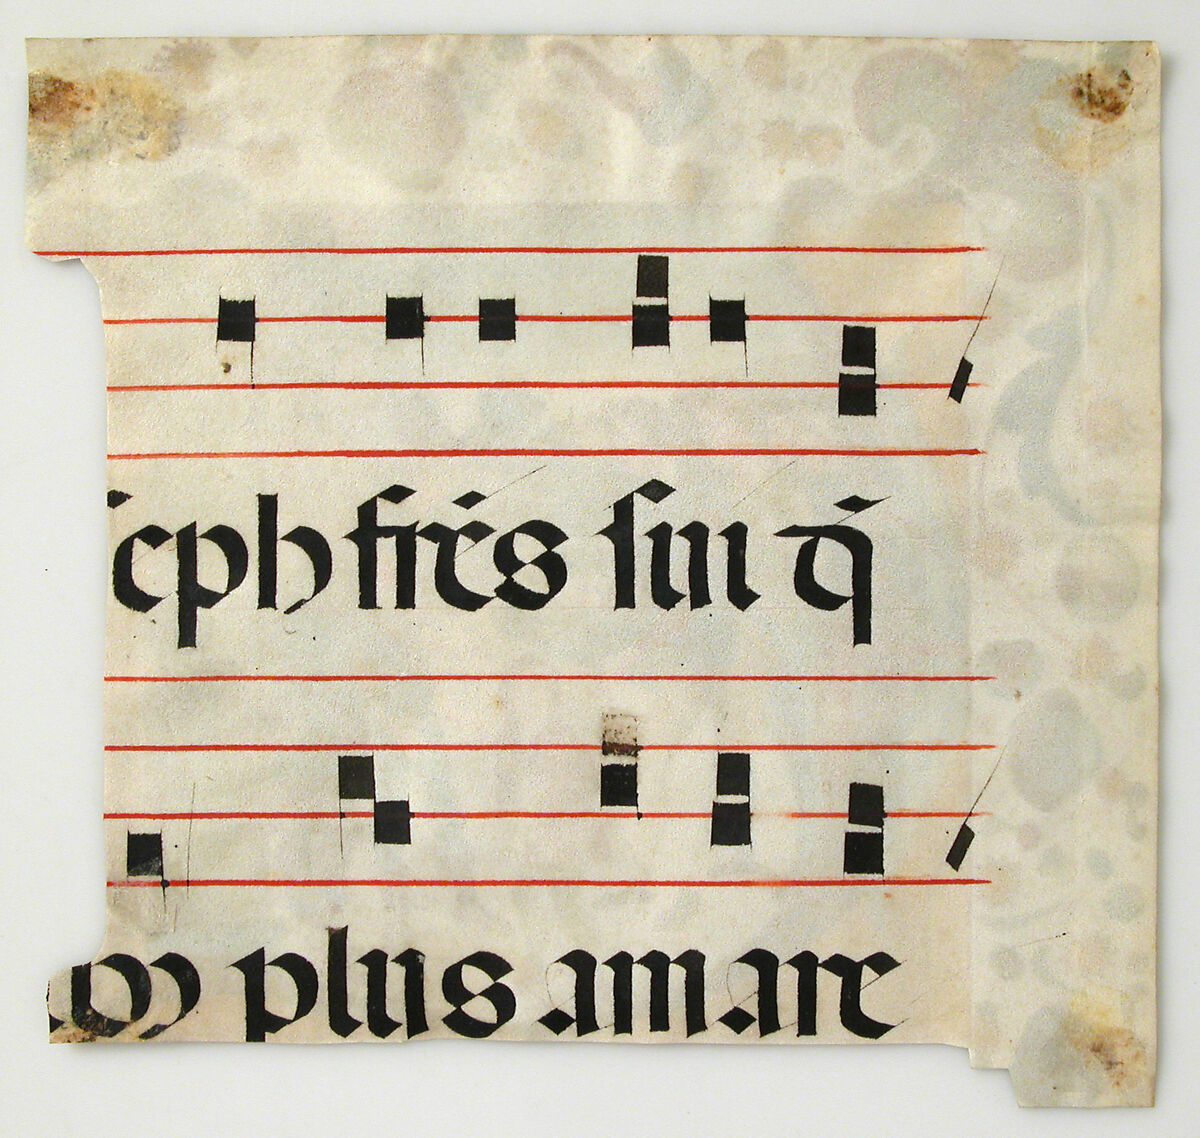 eph fr̄es sui q̄
oꝫ plus amare